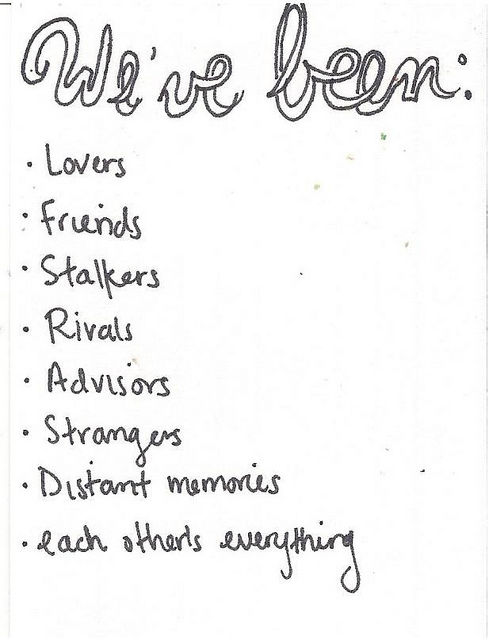 We've been:
· Lovers
· Friends
· Stalkers
· Rivals
· Advisors
· Strangers
· Distant memories
· each other's everything